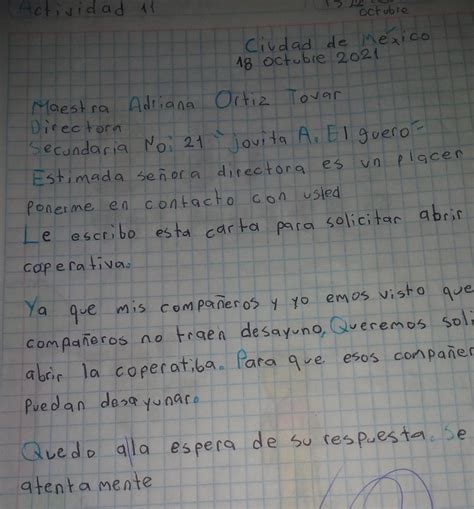 Actividad 11
octubre
Ciudad de México
18 octubre 2021
Maestra Adriana Ortiz Tovar
Directora
Secundaria No: 21 "Jovita A. Elguero"
Estimada señora directora es un placer
ponerme en contacto con usted
Le escribo esta carta para solicitar abrir
caperativa.
Ya que mis compañeros y yo emos visto que
compañeros no traen desayuno, Queremos soli
abrir la coperatiba. Para que esos compañer
puedan desayunar.
Quedo alla espera de su respuesta. Se
atentamente